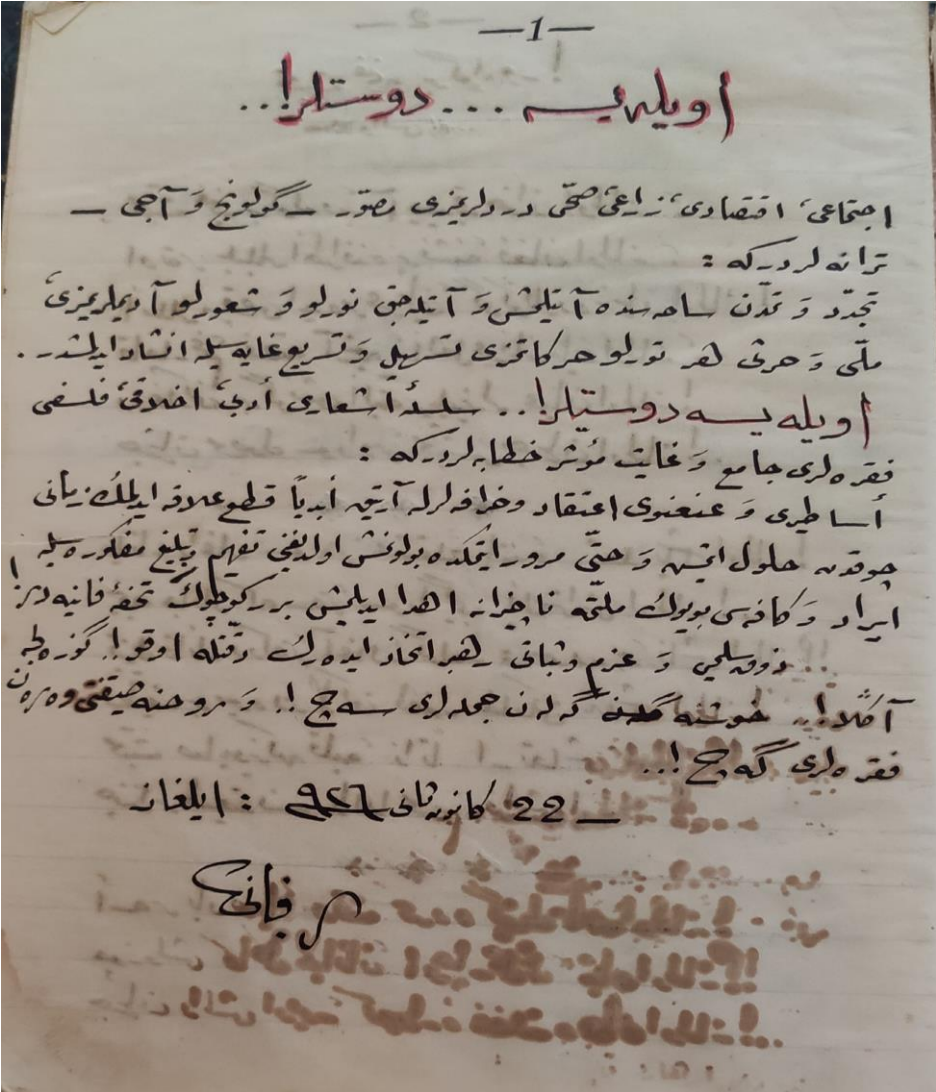 —1—
اویله یسه ... دوستلر!..
اجتماعی، اقتصادی، زراعی، صحّی دردلریمزی مصوّر — گولونج وَ آجی —
ترانه لردرکه :
تجدّد وَ تمدن ساحه سنده آتیلمش وَ آتیله جق نورلو وَ شعورلو آدیملریمزی،
ملّی وَ حرثی هر تورلو حرکاتمزی تسهیل وَ تسریع غایه سیله انشاد ایدلمشدر .
اویله یسه دوستلر!.. سلسلۀ اشعاری أدبی، اخلاقی، فلسفی
فقره لری جامع وَ غایت مؤثر خطابه لردرکه :
أساطیری وَ عنعنوی اعتقاد وخرافه لرله آرتیق أبدیاً قطع علاقه ایدلمك زمانی
چوقدن حلول ایتمش وَ حتّی مرور ایتمكده بولونمش اولدیغنی تفهیم وتبلیغ مفكوره سیله
ایراد وَ كافه سی بویوك ملتمه ناچیزانه اهدا ایدیلمش بر كوچوك تحفۀ فانیه در!
... ذوق سلیمی وَ عزم وثباتی رهبر اتخاذ ایده رك دقتله اوقو!. گوزه لجه
آڭلا!.. خوشنه گـلـن گه لن جمله لری سه چ !. وَ روحنه صیقنتی ویره ن
فقره لری گه چ !...
— 22 كانون ثانی ٩٢٦ : ایلغاز
م فانی